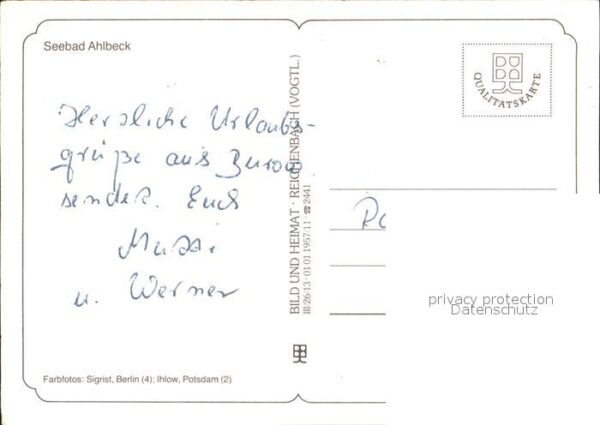 Seebad Ahlbeck
Herzliche Urlaubs-
grüße aus
sendet Euch
u. Werner
Farbfotos: Sigrist, Berlin (4); Ihlow, Potsdam (2)
BILD UND HEIMAT · REICHENBACH (VOGTL.)
III/26/13 · 01 01 1957/11 · ☎ 2441
QUALITÄTSKARTE
privacy protection
Datenschutz